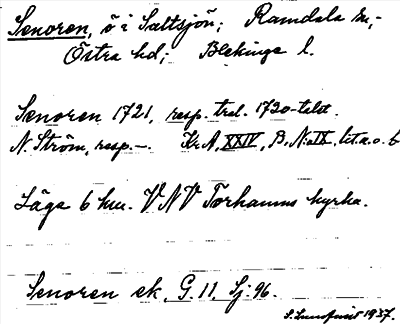 Senoren, ö i Saltsjön; Ramdala sn,
Östra hd; Blekinge l.
Senoren 1721, resp. tral. 1730-talet.
N. Ström, resp. –. Kr.A, XXIV, B, N:o IX, lit. a. o. b
Läge 6 km. VNV Torhamns kyrka.
Senoren ek. G. 11, Sj. 96.
S. Lundqvist 1937.